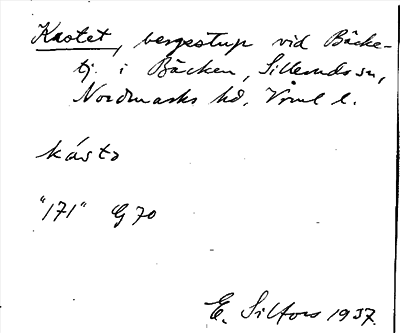 Kastet, bergstup vid Bäcke-
tj. i Bäcken, Silleruds sn,
Nordmarks hd, Vrml l.
kásta
"171" G 70
E. Silfors 1937.